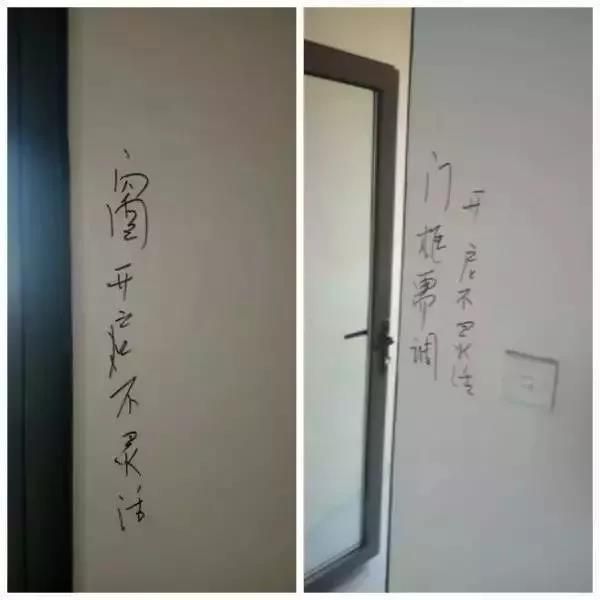 窗开启不灵活
门框需调
开启不灵活